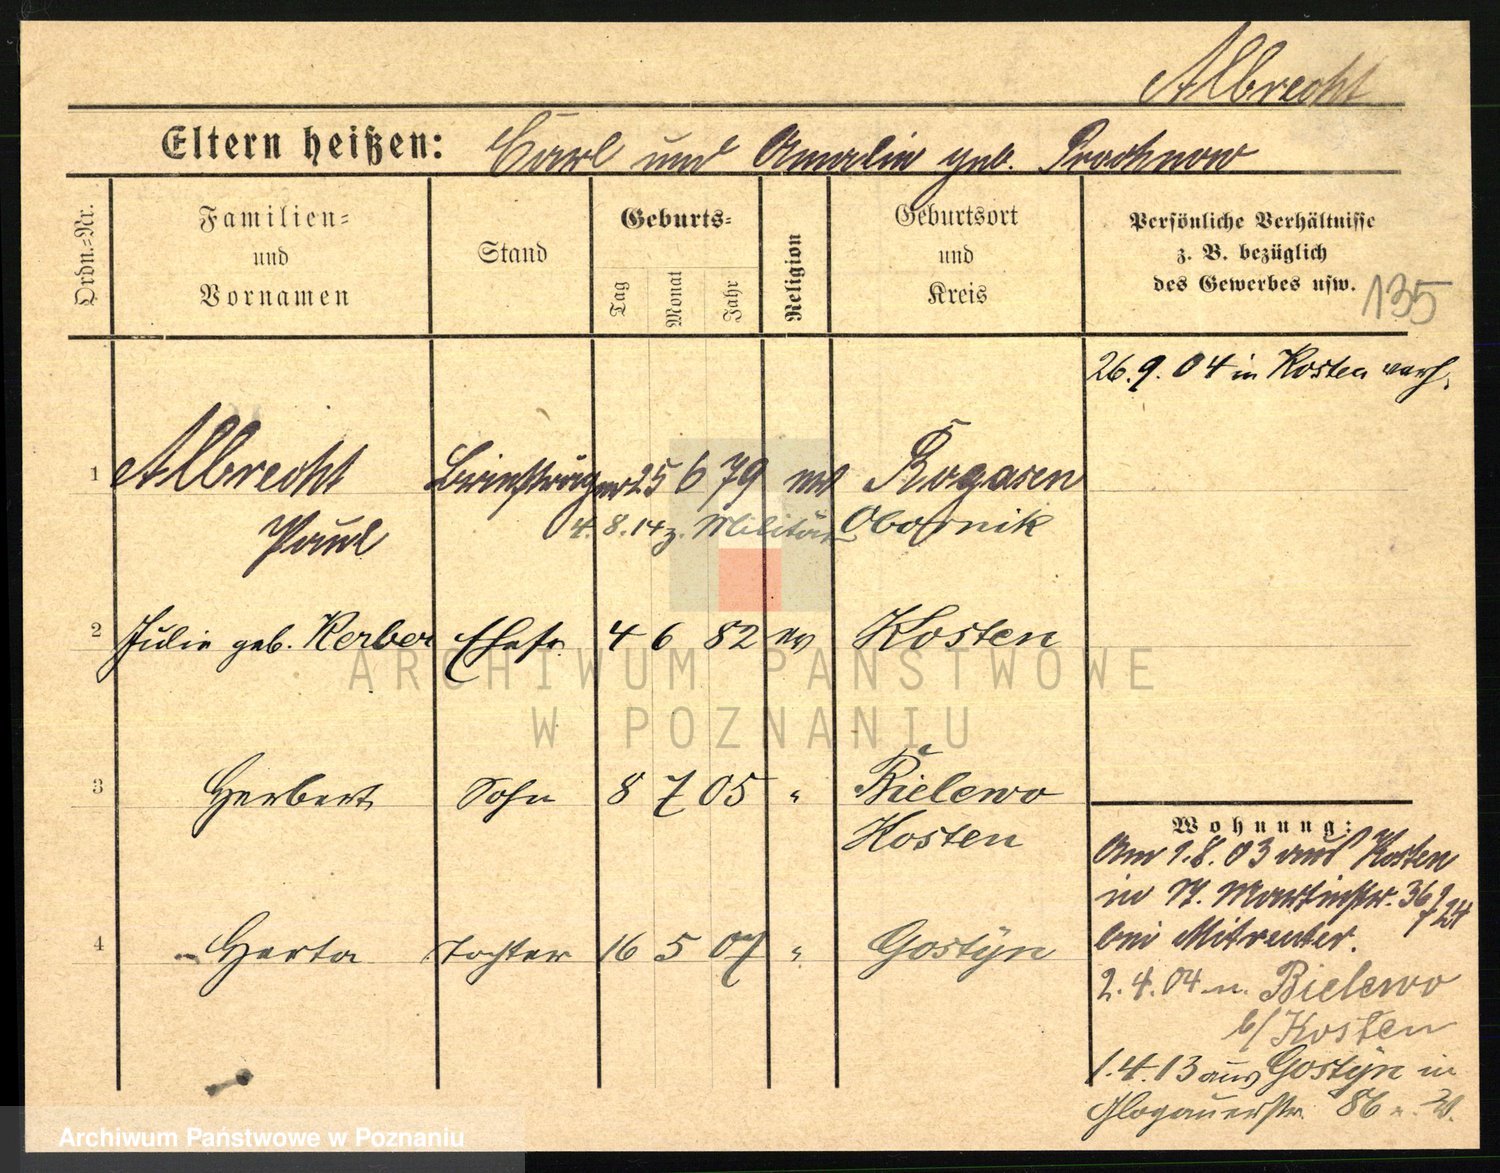 Albrecht
Eltern heißen: Carl und Amalie geb. Prochnow
Ordn.=Nr.
Familien=
und
Vornamen
Stand
Geburts=
Tag
Monat
Jahr
Religion
Geburtsort
und
Kreis
Persönliche Verhältnisse
z. B. bezüglich
des Gewerbes usw.
135
26.9.04 in Kosten verh.
1 Albrecht Briefträger 25 6 79 ev Rogasen
Paul 4.8.14 z. Militär Obornik
2 Julie geb. Kerber Ehefr. 4 6 82 ev Kosten
3 Herbert Sohn 8 7 05 " Bielewo
Kosten
4 Herta Tochter 16 5 07 " Gostÿn
Wohnung:
Am 1.8.03 aus Kosten
in St. Martinstr. 36
bei Mitreuter.
2.4.04 n. Bielewo
b/Kosten
1.4.13 aus Gostÿn in
Glogauerstr. 86
ARCHIWUM PAŃSTWOWE
W POZNANIU
Archiwum Państwowe w Poznaniu